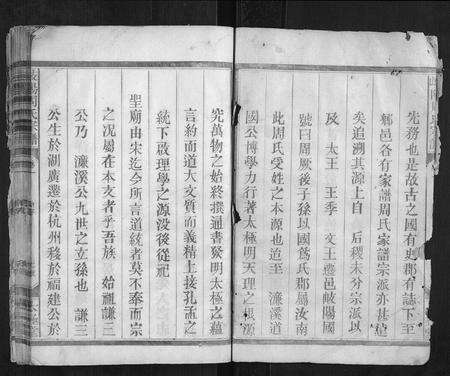 先務也是故古之國有史郡有誌下至
鄉邑各有家譜周氏家譜宗派亦甚
矣追溯其源上自 后稷未分宗派以
及 太王 王季 文王豐邑岐陽國
號曰周厥後子孫以國爲氏郡屬汝南
此周氏受姓之本源也迨至 濂溪道
國公博學力行著太極明天理之根源
究萬物之始終撰通書發明太極之蘊
言約而道大文質而義精上接孔孟之
統下啟理學之源没後從祀
聖廟由宋迄今所言道統者莫不奉而宗
之况屬在本支者乎吾族 始祖謙三
公乃 濂溪公九世之立孫也 謙三
公生於湖廣遷於杭州移於福建公於
周氏宗譜